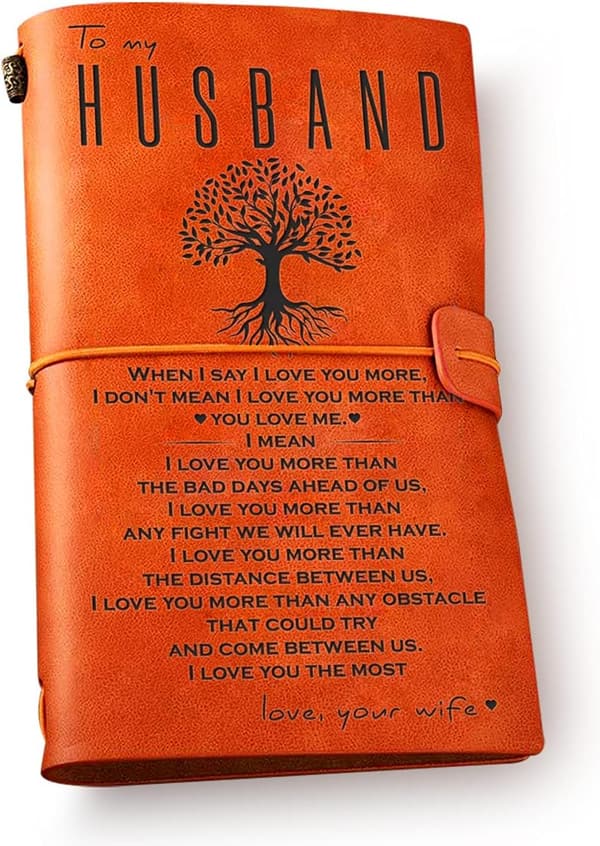 To my
HUSBAND
WHEN I SAY I LOVE YOU MORE,
I DON'T MEAN I LOVE YOU MORE THAN
♥YOU LOVE ME.♥
I MEAN
I LOVE YOU MORE THAN
THE BAD DAYS AHEAD OF US,
I LOVE YOU MORE THAN
ANY FIGHT WE WILL EVER HAVE.
I LOVE YOU MORE THAN
THE DISTANCE BETWEEN US,
I LOVE YOU MORE THAN ANY OBSTACLE
THAT COULD TRY
AND COME BETWEEN US.
I LOVE YOU THE MOST
love, your wife ♥